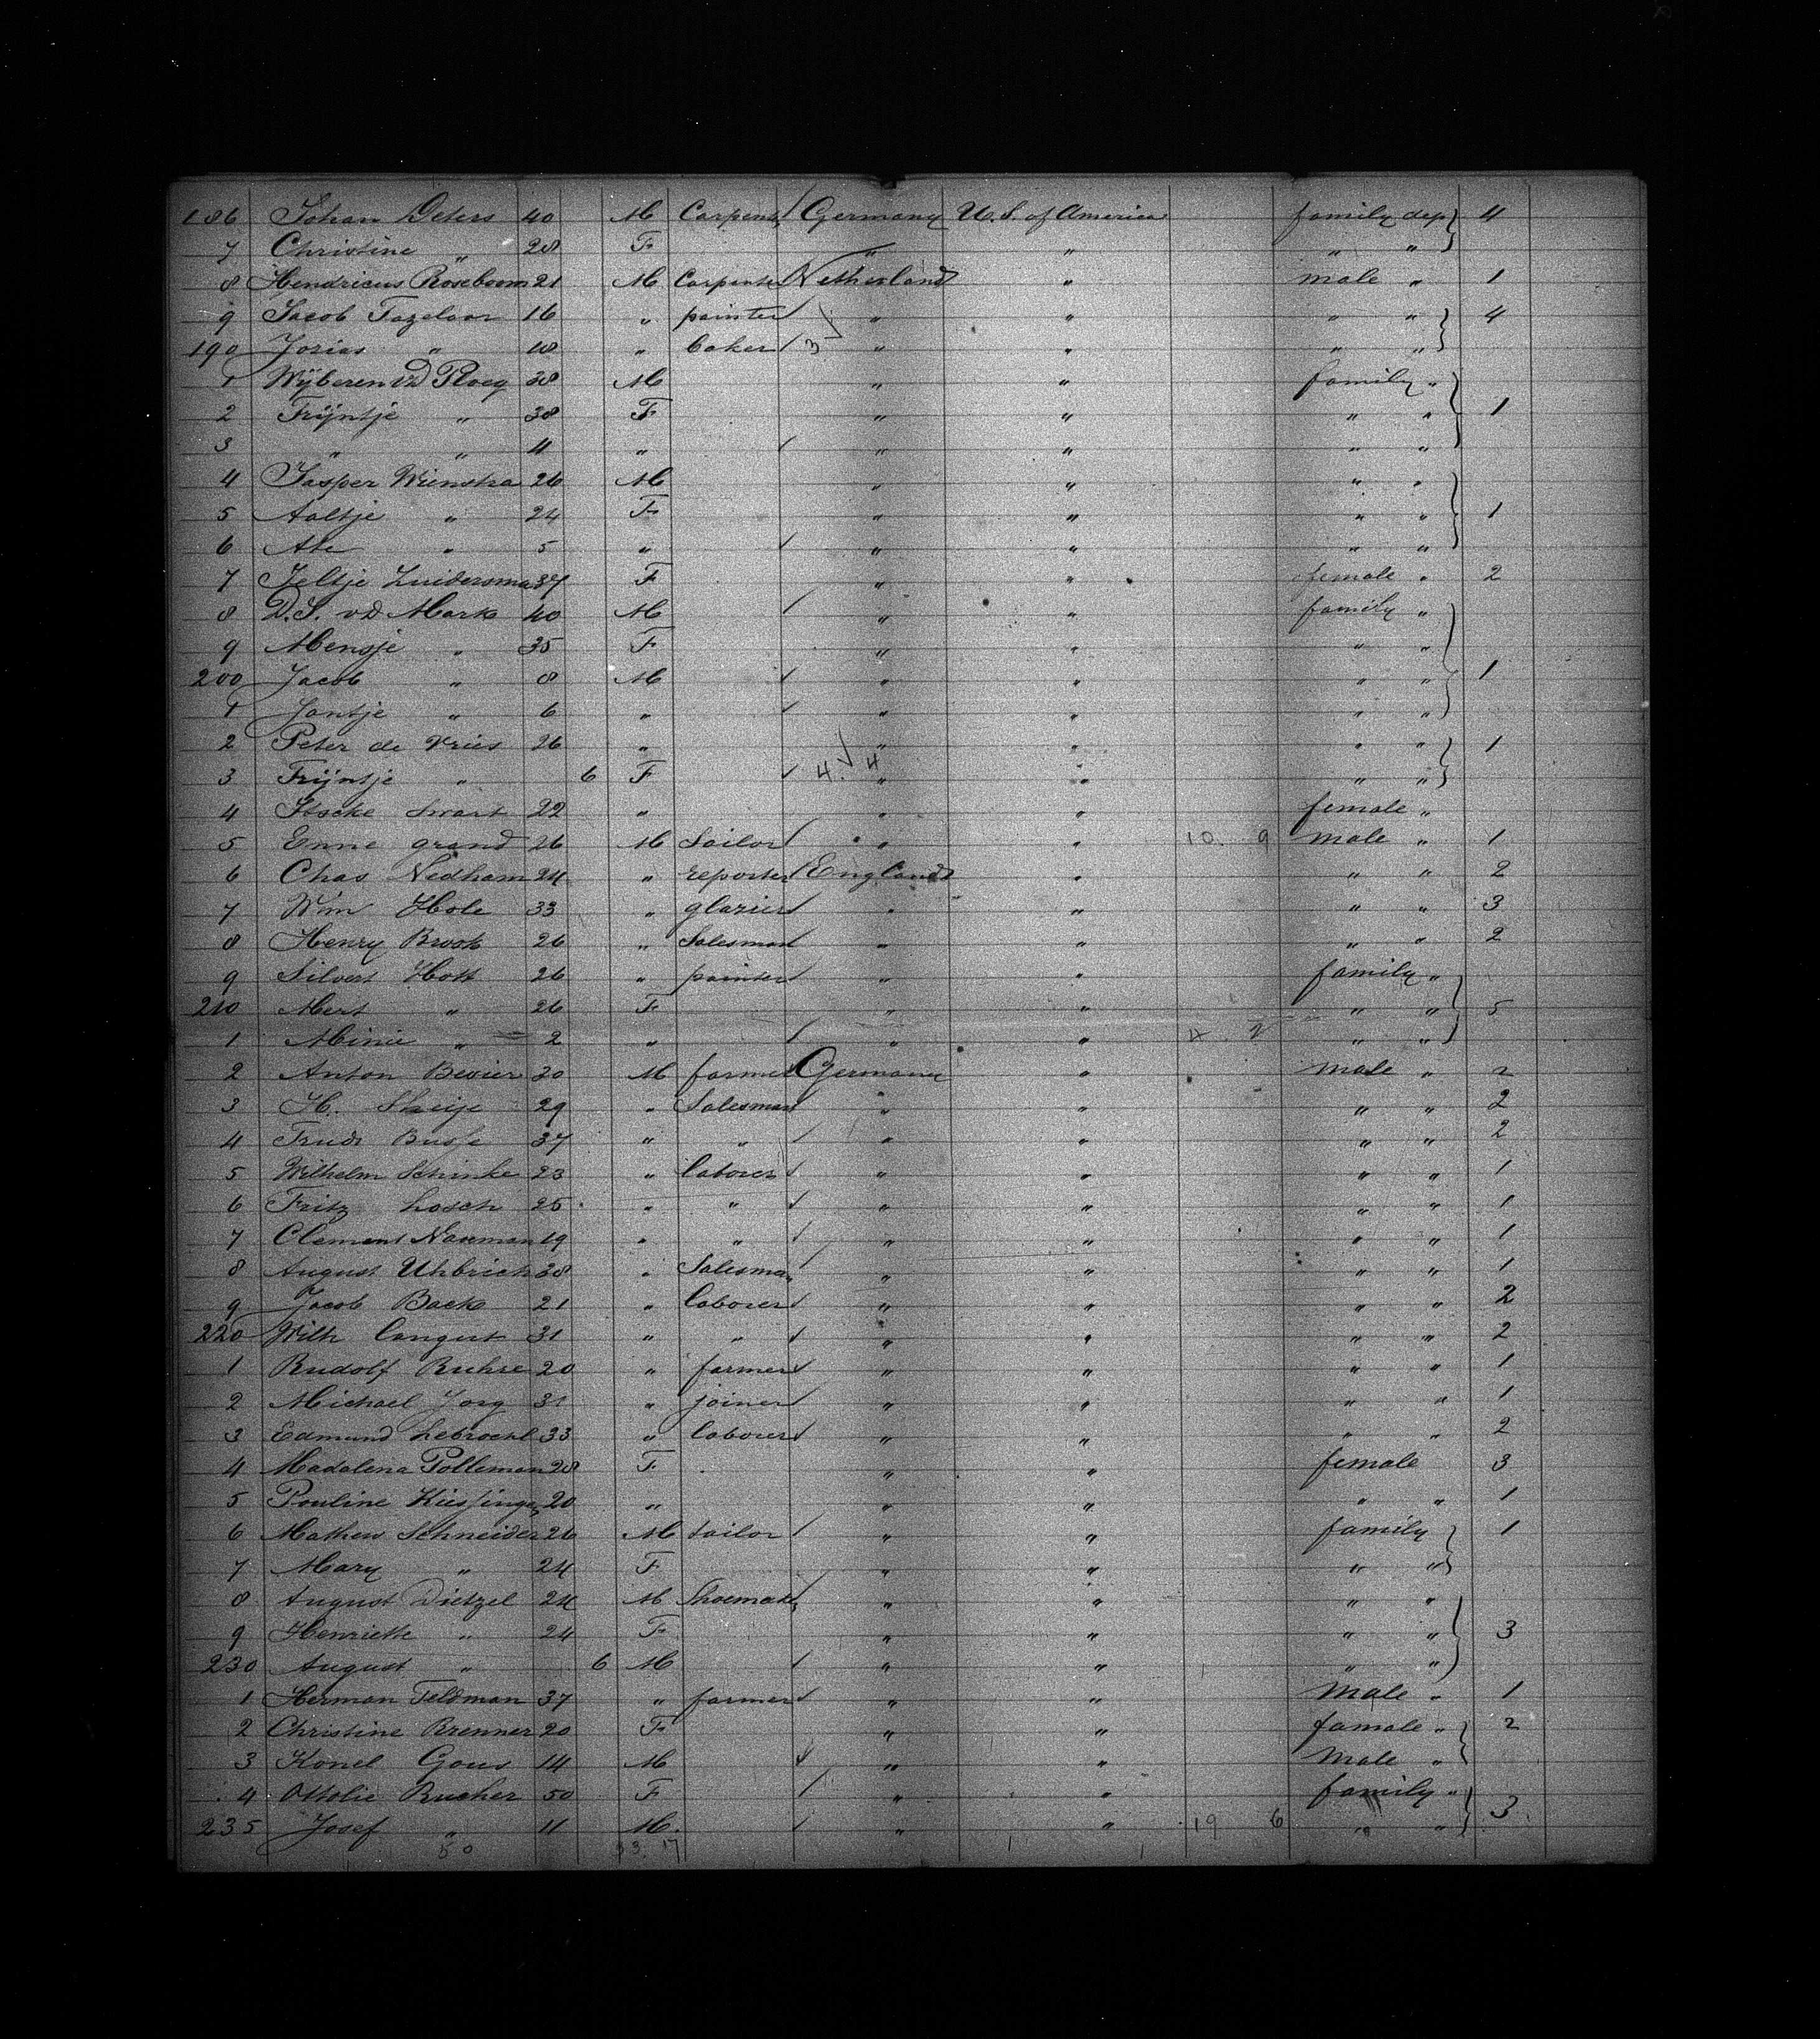 186 Johan Deters 40 M Carpent Germany U.S. of America family dep 4
7 Christine " 28 F " " " "
8 Hendricus Roseboom 21 M Carpenter Netherland " male " 1
9 Jacob Fazelaar 16 " painter " " " " 4
190 Jorias " 18 " baker 3 " " " "
1 Wÿberen vd Ploeg 38 M " " family "
2 Trÿntje " 38 F " " " " 1
3 " " 11 " " " " "
4 Jasper Wienstra 26 M " " " "
5 Aaltje " 24 F " " " " 1
6 Ate " 5 " " " " "
7 Jeltje Zuidersma 37 F " " female " 2
8 D.S. vd Mark 40 M " " family "
9 Mensje " 35 F " " " "
200 Jacob " 8 M " " " " 1
1 Jantje " 6 " " " " "
2 Peter de Vries 26 " " " " " 1
3 Trÿntje " 6 F 4. 4 " " " "
4 Itscke Swart 22 " " " female "
5 Enne grand 26 M Sailor " " 10. 9 male " 1
6 Chas Nedham 24 " reporter England " " " 2
7 Wm Hole 33 " glazier " " " " 3
8 Henry Brook 26 " Salesman " " " " 2
9 Silvert Hott 26 " painter " " family "
210 Mert " 26 F " " " " 5
1 Minie " 2 " " " 4 2 " "
2 Anton Bevier 30 M farmer Germany " male " 2
3 H. 29 " Salesman " " " " 2
4 Busse 37 " " " " " " 2
5 Wilhelm Schinke 23 " laborer " " " " 1
6 Fritz Losch 25 " " " " " " 1
7 Clemens Nauman 19 " " " " " " 1
8 August Uhbrich 38 " Salesman " " " " 1
9 Jacob Back 21 " laborer " " " " 2
220 Wilh Cangert 31 " " " " " " 2
1 Rudolf Ruhse 20 " farmer " " " " 1
2 Michael Jorg 31 " joiner " " " " 1
3 Edmund 33 " laborer " " " " 2
4 Madalena Polleman 28 F " " female 3
5 Pouline Kiessinger 20 " " " " " 1
6 Mathew Schneider 26 M tailor " " family 1
7 Mary " 24 F " " " "
8 August Dietzel 24 M Shoemak " " " "
9 Henriette " 24 F " " " " 3
230 August " 6 M " " " "
1 Herman Feldman 37 " farmer " " Male " 1
2 Christine Brenner 20 F " " famale " 2
3 Konel Gous 14 M " " Male "
4 Ottolie Rucher 50 F " " family "
235 Josef " 11 M. " " 19 6 " " 3
50 33. 17